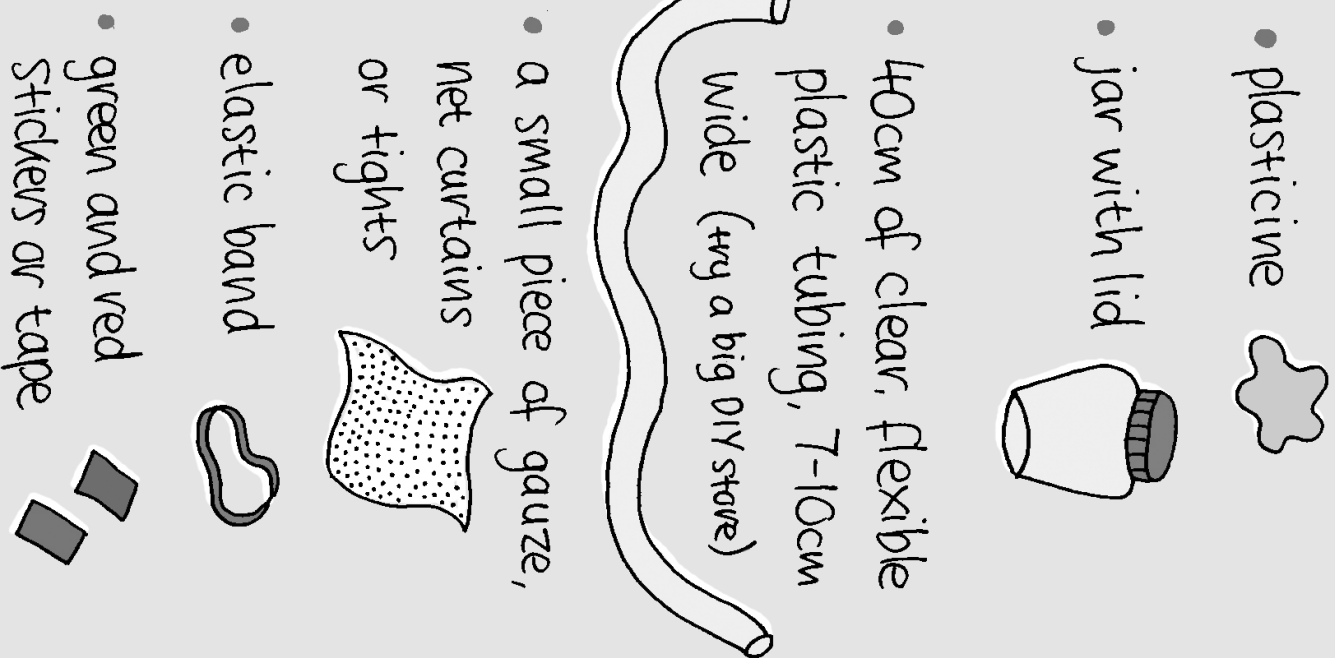 plasticine
jar with lid
40cm of clear, flexible
plastic tubing, 7-10cm
wide (try a big DIY store)
a small piece of gauze,
net curtains
or tights
elastic band
green and red
stickers or tape